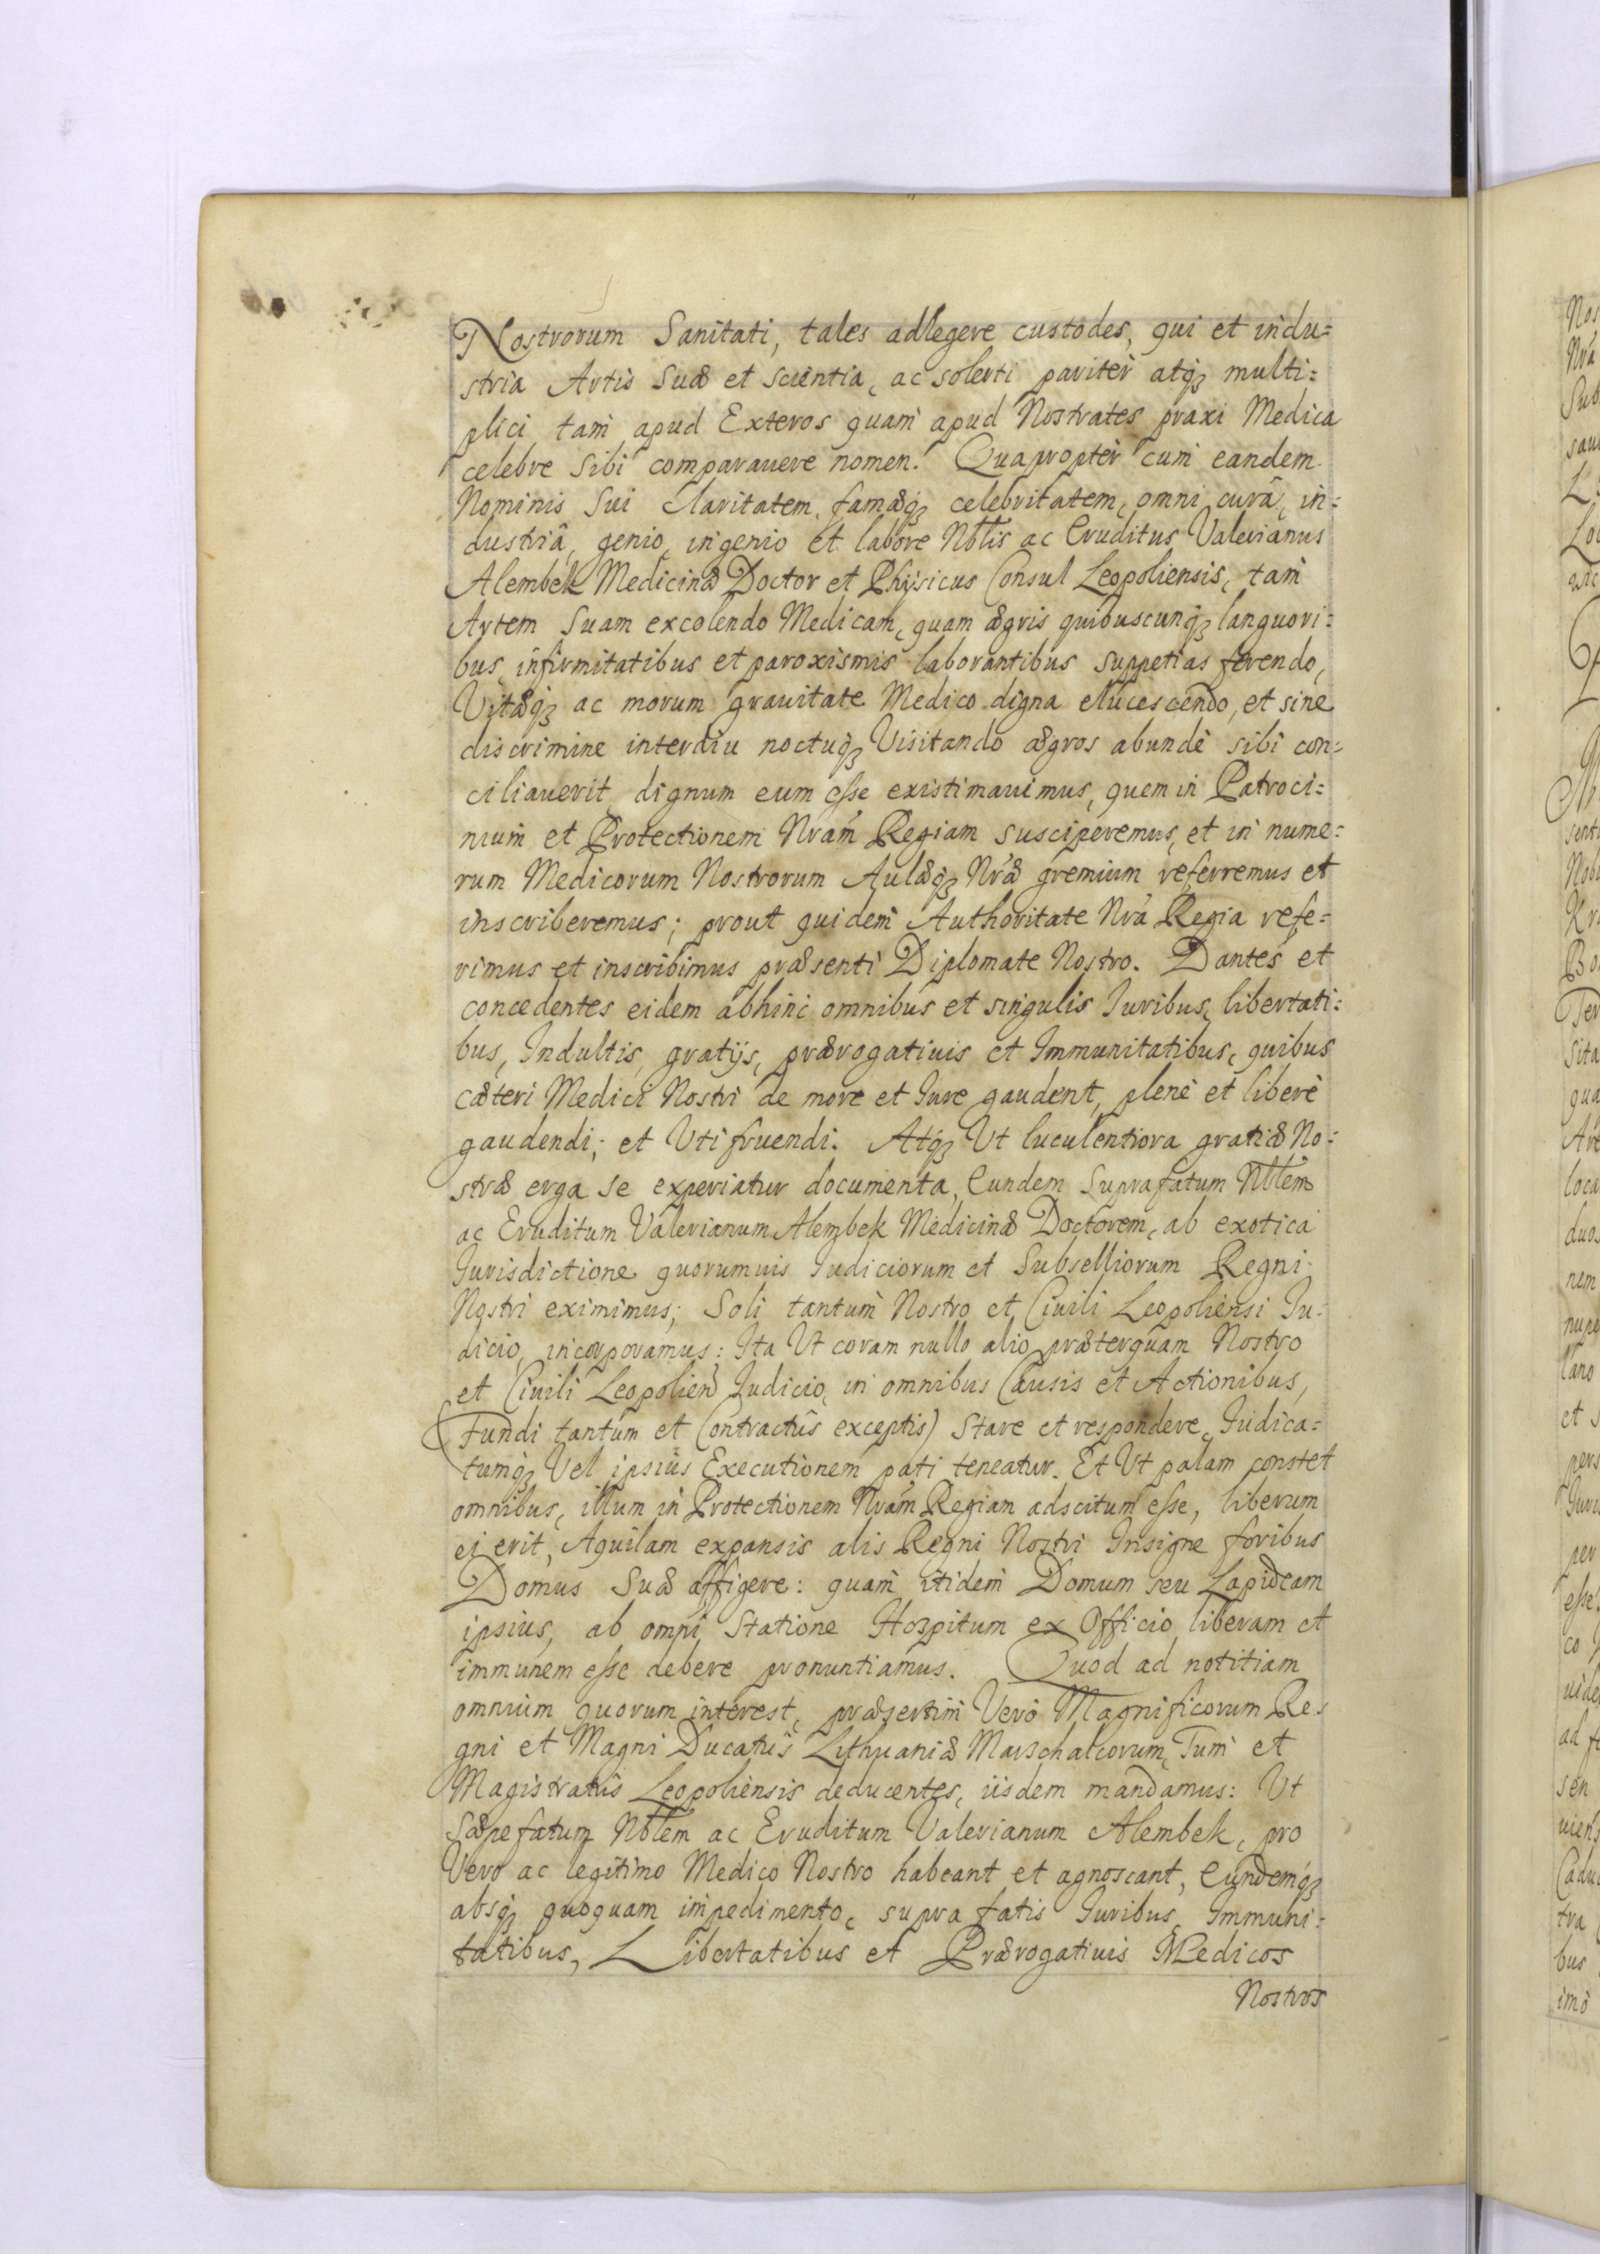 Nostrorum Sanitati, tales adlegere custodes, qui et indu=
stria Artis Suæ et scientia, ac solerti pariter atq3 multi=
plici tam apud Exteros quam apud Nostrates praxi Medica
celebre Sibi comparauere nomen. Quapropter cum eandem
Nominis Sui claritatem, famæq3 celebritatem, omni curâ, in=
dustriâ, genio, ingenio et labore Nblis ac Eruditus Valerianus
Alembek Medicinæ Doctor et Physicus Consul Leopoliensis, tam
Artem Suam excolendo Medicam, quam ægris quibuscunq3 languori=
bus, infirmitatibus et paroxismis laborantibus suppetias ferendo,
Vitæq3 ac morum grauitate Medico digna elucescendo, et sine
discrimine interdiu noctuq3 Visitando ægros abundè sibi con=
ciliauerit, dignum eum esse existimauimus, quem in Patroci=
nium et Protectionem Nram Regiam susciperemus, et in nume=
rum Medicorum Nostrorum Aulæq3 Nræ gremium referremus et
inscriberemus; prout quidem Authoritate Nra Regia refe=
rimus et inscribimus præsenti Diplomate Nostro. Dantes et
concedentes eidem abhinc omnibus et singulis Iuribus, libertati=
bus, Indultis, gratijs, prærogatiuis et Immunitatibus, quibus
cæteri Medici Nostri de more et Iure gaudent, plenè et liberè
gaudendi; et Vti fruendi. Atq3 Vt luculentiora gratiæ No=
stræ erga se experiatur documenta, Eundem Suprafatum Nblem
ac Eruditum Valerianum Alembek Medicinæ Doctorem, ab exotica
Iurisdictione quorumuis Iudiciorum et Subselliorum Regni
Nostri eximimus; Soli tantum Nostro et Ciuili Leopoliensi Iu=
dicio, incorporamus: Ita Vt coram nullo alio præterquam Nostro
et Ciuili Leopolien Iudicio, in omnibus Causis et Actionibus,
(Fundi tantum et Contractûs exceptis) Stare et respondere, Iudica=
tumq3 Vel ipsius Executionem pati teneatur. Et Vt palam constet
omnibus, illum in Protectionem Nram Regiam adscitum esse, liberum
ei erit, Aquilam expansis alis Regni Nostri Insigne foribus
Domus Suæ affigere: quam itidem Domum seu Lapideam
ipsius, ab omni Statione Hospitum ex Officio liberam et
immunem esse debere pronuntiamus. Quod ad notitiam
omnium quorum interest, præsertim Verò Magnificorum Re=
gni et Magni Ducatûs Lithuaniæ Marschalcorum, Tum et
Magistratûs Leopoliensis deducentes, iisdem mandamus: Vt
Sæpefatum Nblem ac Eruditum Valerianum Alembek, pro
Vero ac legitimo Medico Nostro habeant et agnoscant, Eundemq3
absq3 quoquam impedimento, supra fatis Iuribus, Immuni=
tatibus, Libertatibus et Prærogatiuis Medicos
Nostros